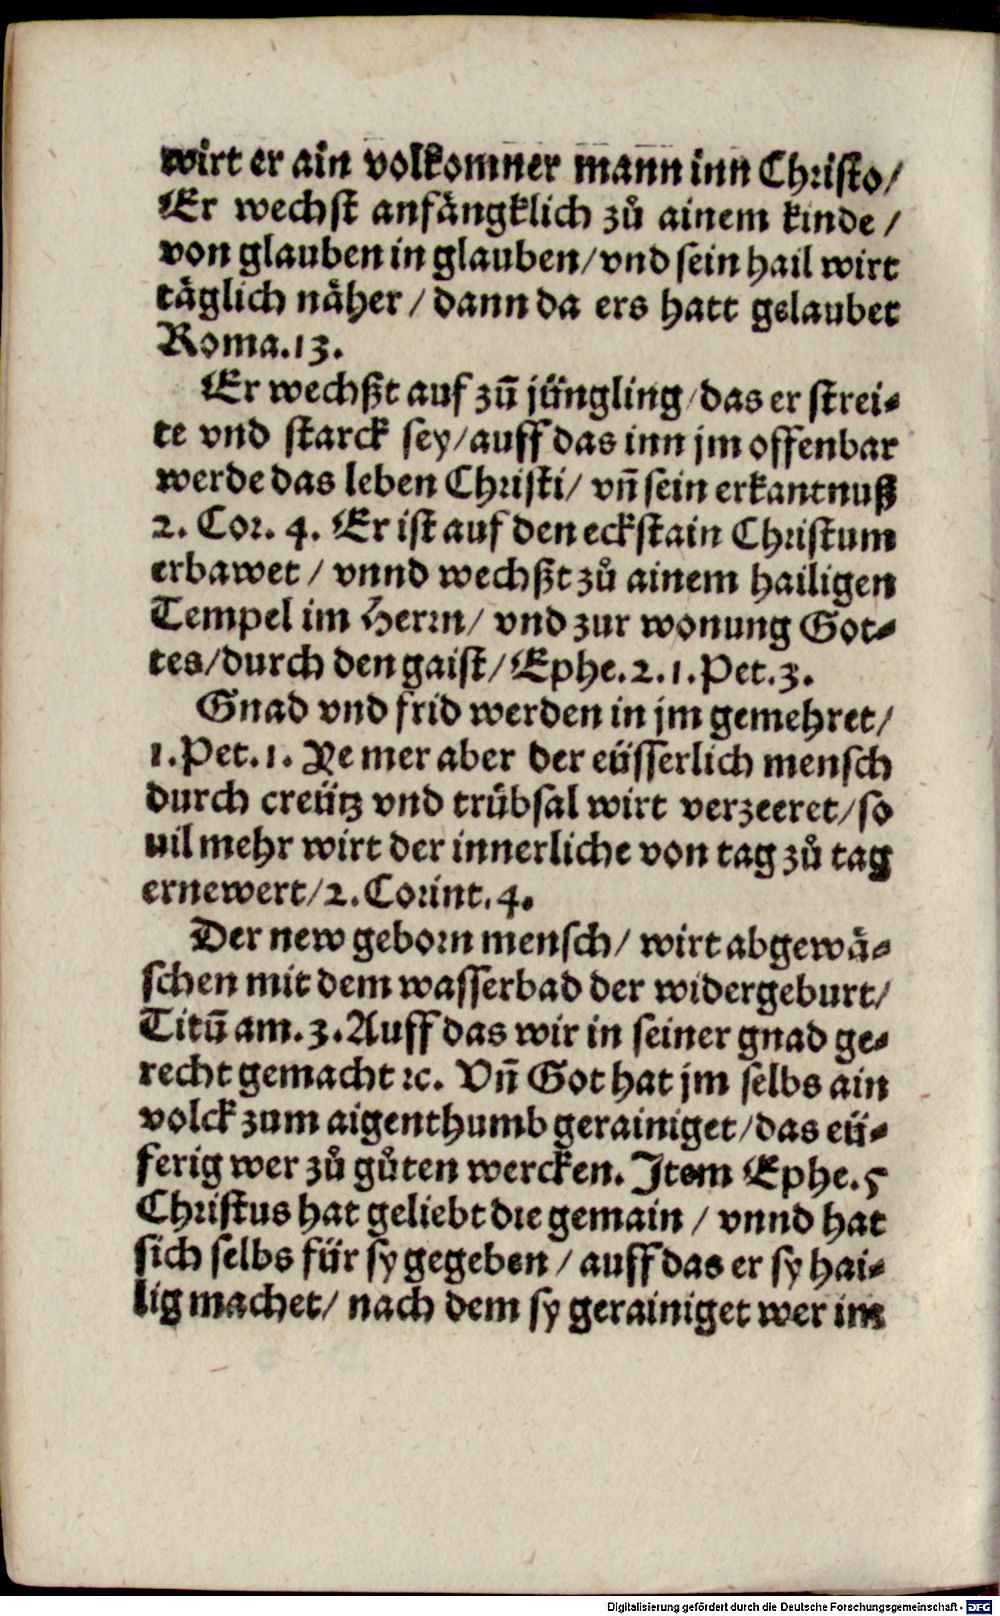 wirt er ain volkomner mann inn Christo/
Er wechst anfängklich zů ainem kinde /
von glauben in glauben/vnd sein hail wirt
täglich näher / dann da ers hatt gelaubet
Roma.13.
Er wechßt auf zů jüngling/das er strei⸗
te vnd starck sey/auff das inn jm offenbar
werde das leben Christi/ vñ sein erkantnuß
2. Cor. 4. Er ist auf den eckstain Christum
erbawet / vnnd wechßt zů ainem hailigen
Tempel im Herrn/ vnd zur wonung Got⸗
tes/durch den gaist/Ephe.2.1.Pet.3.
Gnad vnd frid werden in jm gemehret/
1.Pet.1. Ye mer aber der eüsserlich mensch
durch creütz vnd trübsal wirt verzeeret/so
uil mehr wirt der innerliche von tag zů tag
ernewert/2.Corint.4.
Der new geborn mensch/ wirt abgewä⸗
schen mit dem wasserbad der widergeburt/
Titũ am.3.Auff das wir in seiner gnad ge⸗
recht gemacht ꝛc. Vñ Got hat jm selbs ain
volck zum aigenthumb gerainiget/das eü⸗
ferig wer zů gůten wercken. Item Ephe.5
Christus hat geliebt die gemain / vnnd hat
sich selbs für sy gegeben / auff das er sy hai⸗
lig machet/ nach dem sy gerainiget wer im
Digitalisierung gefördert durch die Deutsche Forschungsgemeinschaft - DFG